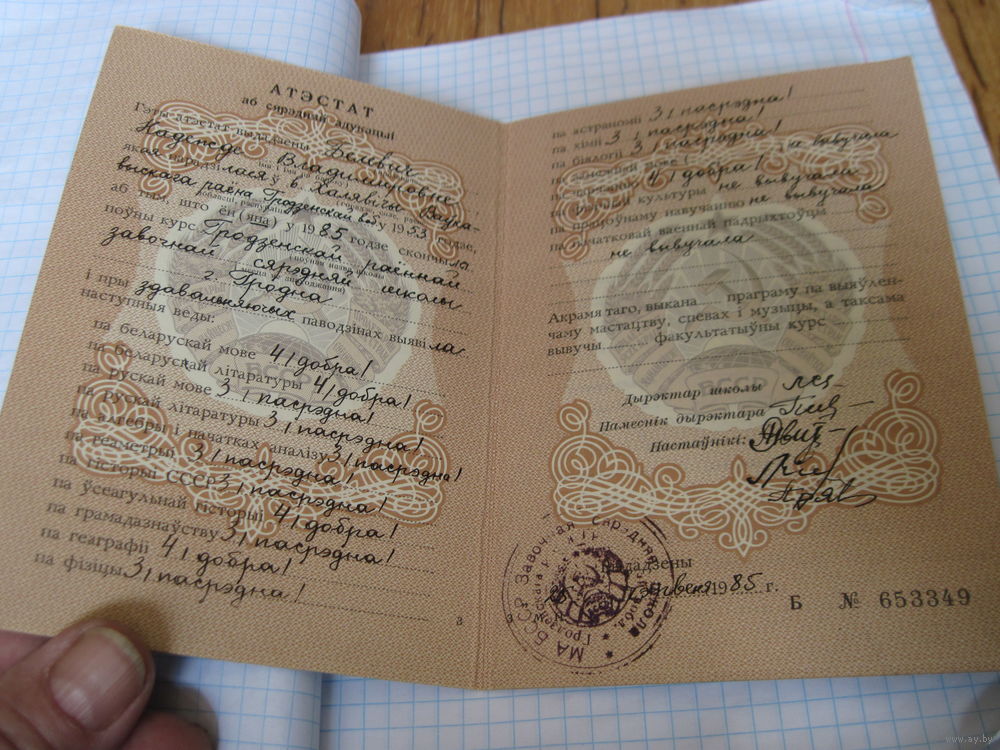 АТЭСТАТ
аб сярэдняй адукацыі
Гэты атэстат выдадзены
Надежде Владимировне
якая нарадзілася ў в.
раёна Гродзенскай вб. у 1953 годзе,
аб тым, што ён (яна) у 1985 годзе скончыла
поўны курс Гродзенскай раённай
завочнай сярэдняй школы
г. Гродна
і пры здавальняючых паводзінах выявіла
наступныя веды:
па беларускай мове 4 (добра)
па беларускай літаратуры 4 (добра)
па рускай мове 3 (пасрэдна)
па рускай літаратуры 3 (пасрэдна)
па алгебры і пачатках аналізу 3 (пасрэдна)
па геаметрыі 3 (пасрэдна)
па гісторыі СССР 3 (пасрэдна)
па ўсеагульнай гісторыі 4 (добра)
па грамадазнаўству 3 (пасрэдна)
па геаграфіі 4 (добра)
па фізіцы 3 (пасрэдна)
3
па астраноміі 3 (пасрэдна)
па хіміі 3 (пасрэдна)
па біялогіі 3 (пасрэдна)
мове ( ) не вывучала
4 (добра)
культуры не вывучала
па працоўнаму навучанню не вывучала
па пачатковай ваеннай падрыхтоўцы
не вывучала
Акрамя таго, выкана праграму па выяўлен-
чаму мастацтву, спевах і музыцы, а таксама
вывучы факультатыўны курс
Дырэктар школы
Намеснік дырэктара
Настаўнікі:
Выдадзены
1985 г.
Б № 653349
МА БССР Завочная сярэдняя школа
БССР
www.ay.by